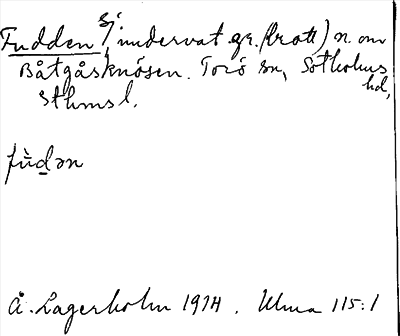 Fudden, undervat.gr. (krott) n. om
Båtgåsknösen. Torö sn, Sotholms
hd,
Sthms l.
fù̀dən
Å. Lagerholm 1914. Ulma 115:1